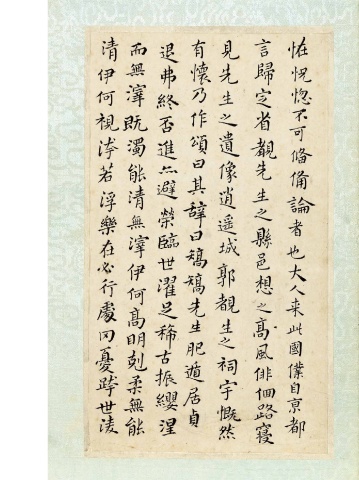 怪怳惚不可備論者也大人来此國僕自京都
言歸定省覩先生之縣邑想之高風俳佪路寑
見先生之遺像逍遥城郭覩生之祠宇慨然
有懷乃作頌曰其辞曰矯矯先生肥遁居貞
退弗終否進亦避榮臨世濯足稀古振纓涅
而無滓既濁能清無滓伊何髙明剋柔無能
清伊何視洿若浮樂在必行處罔憂跨世淩